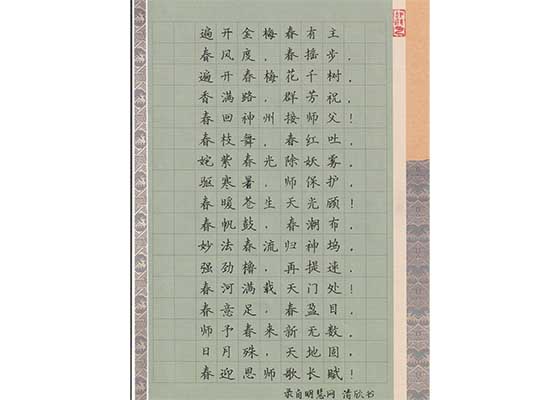 遍开金梅春有主
春风度，春摇步，
遍开春梅花千树，
香满路，群芳祝，
春回神州接师父！
春枝舞，春红吐，
姹紫春光除妖雾，
驱寒暑，师保护，
春暖苍生天光顾！
春帆鼓，春潮布，
妙法春流归神坞，
强劲橹，再提速，
春河满载天门处！
春意足，春盈目，
师予春来新无数，
日月殊，天地固，
春迎恩师歌长赋！
录自明慧网 清欣书